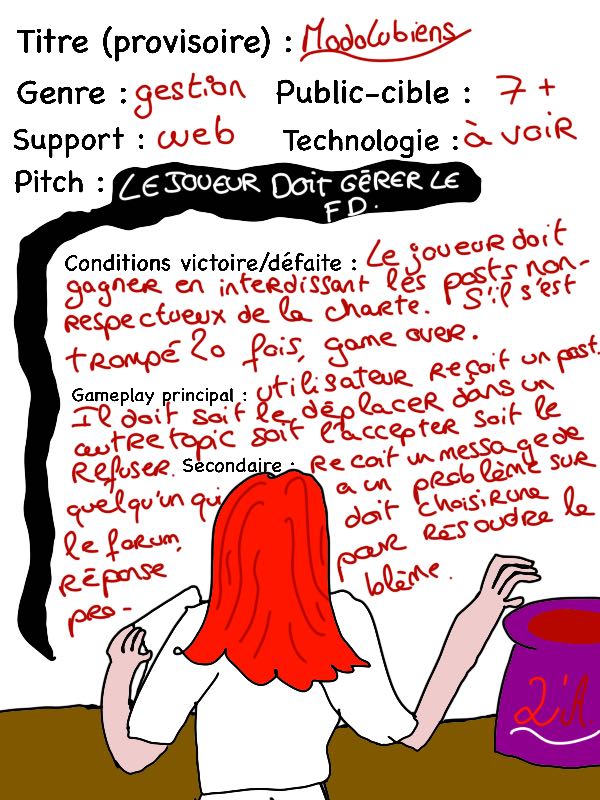 Titre (provisoire) : Modolubiens
Genre : gestion Public-cible : 7 +
Support : web Technologie : à voir
Pitch : LE JOUEUR DOIT GÉRER LE
FD.
Conditions victoire/défaite : Le joueur doit
gagner en interdissant les posts non-
respectueux de la charte. S'il s'est
trompé 20 fois, game over.
Gameplay principal : utilisateur reçoit un post.
Il doit soit le déplacer dans un
autre topic soit l'accepter soit le
refuser. Secondaire : recoit un message de
quelqu'un qui a un problème sur
le forum, doit choisir une
réponse pour résoudre le
pro- blème.